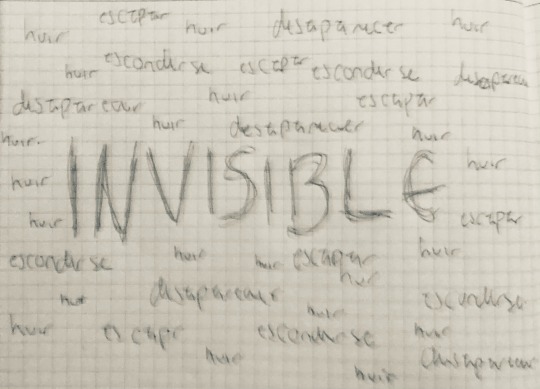 huir escapar huir desaparecer huir
huir escondurse escapar escondurse desaparecer
desaparecer huir escapar
huir desaparecer huir
huir. INVISIBLE huir
huir
huir escapar
escondurse huir huir escapar huir
huir
huir desaparecer huir escondurse
huir escapr escondurse huir
huir desaparecer
huir